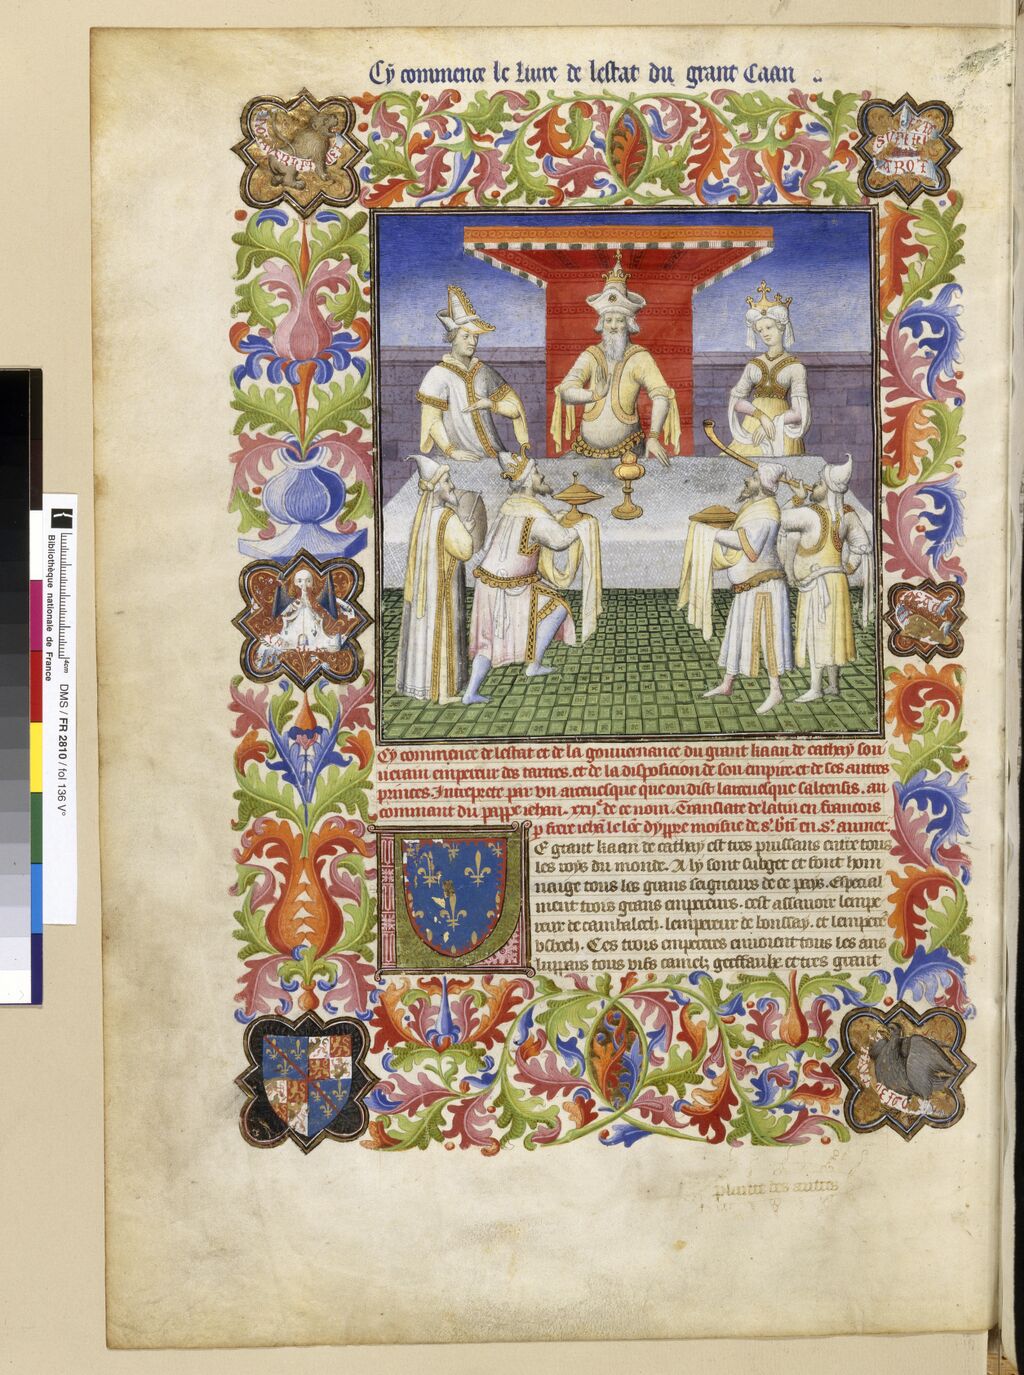 Cy commence le liure de lestat du grant Caan
Cy commence de lestat et de la gouuernance du grant kaan de cathay sou
uerain empereur des tartres. et de la disposicion de son empire. et de ses autres
princes. Interprete par vn arceuesque que on dist larceuesque saltensis. au
command du pappe iehan .xxij.e de ce nom. Translate de latin en francois
p frere iehan le lonc dyppre moisne de st btin en st aumer.
E grant kaan de cathay est tres puissans entre tous
les roys du monde. A ly sont subget et font hom
maige tous les grans seigneurs de ce pays. Especial
ment trois grans empereurs. cest assauoir lempe
reur de cambalech. lempereur de boussay. et lempere
vsbech. Ces trois empereres enuoient tous les ans
lupars tous vifs camelz gerffaulx et tres grant
Bibliothèque nationale de France
4cm
DMS / FR 2810 / fol 136 V°